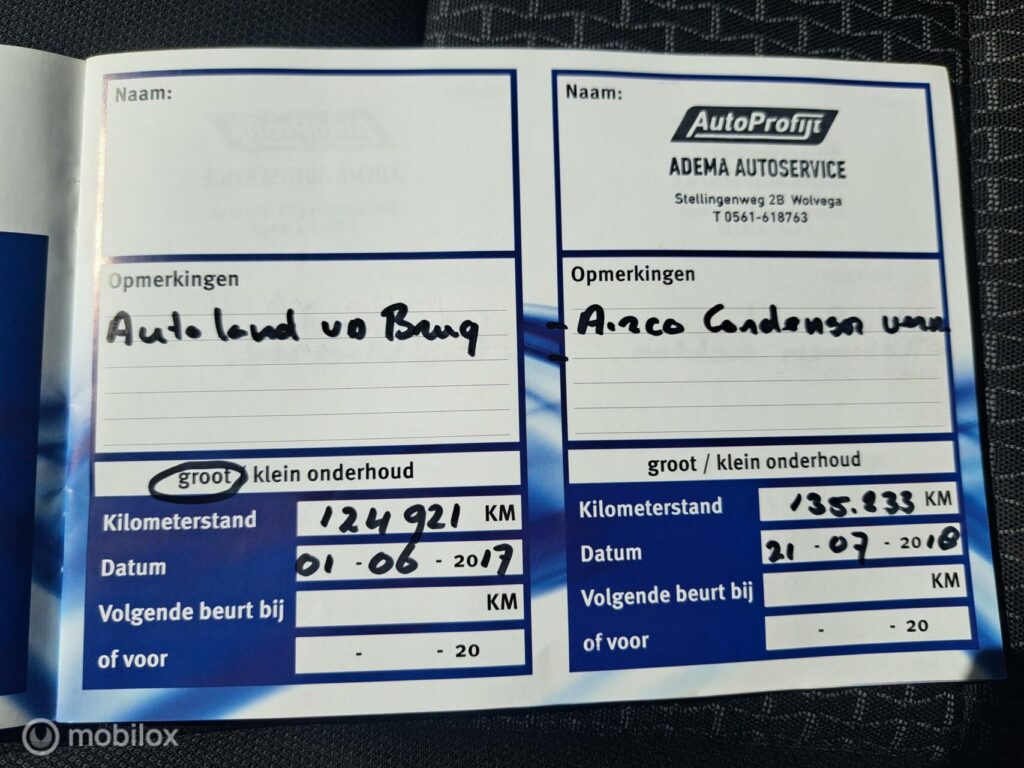 Naam:
Opmerkingen
Autoland vd Brug
groot / klein onderhoud
Kilometerstand 124921 KM
Datum 01 - 06 - 2017
Volgende beurt bij KM
of voor - - 20
Naam:
AutoProfijt
ADEMA AUTOSERVICE
Stellingenweg 2B Wolvega
T 0561-618763
Opmerkingen
- Airco Condensor vern
-
groot / klein onderhoud
Kilometerstand 135.833 KM
Datum 21 - 07 - 2018
Volgende beurt bij KM
of voor - - 20
mobilox